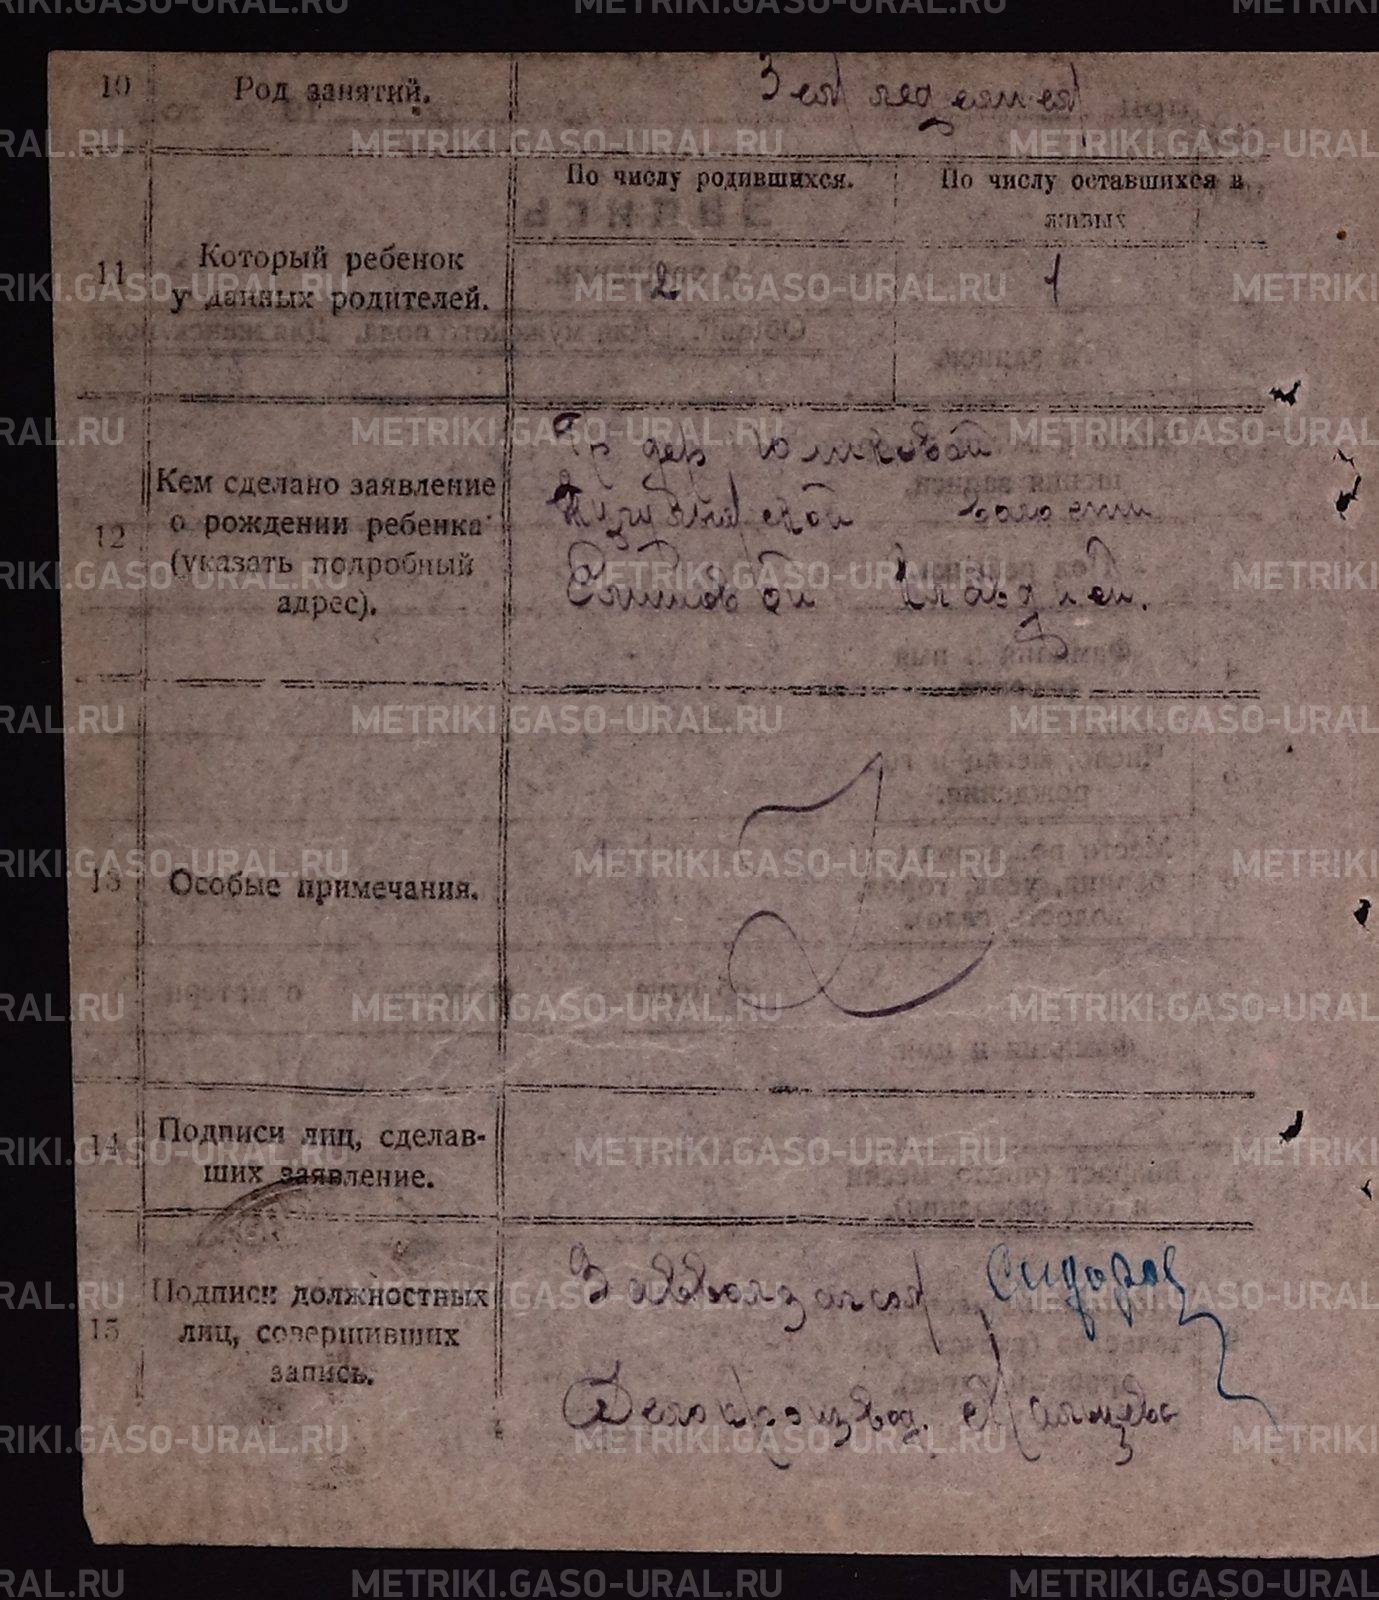 METRIKI.GASO-URAL.RU
10 Род занятий. Земледелие
11 Который ребенок
у данных родителей.
По числу родившихся. По числу оставшихся в
живых
2 1
12 Кем сделано заявление
о рождении ребенка
(указать подробный
адрес).
Гр дер
волости
Сытиовой Клавдией.
13 Особые примечания.
14 Подписи лиц, сделав-
ших заявление.
15 Подписи должностных
лиц, совершивших
запись.
Завволзагсом Сидоров
Делопроизвод.